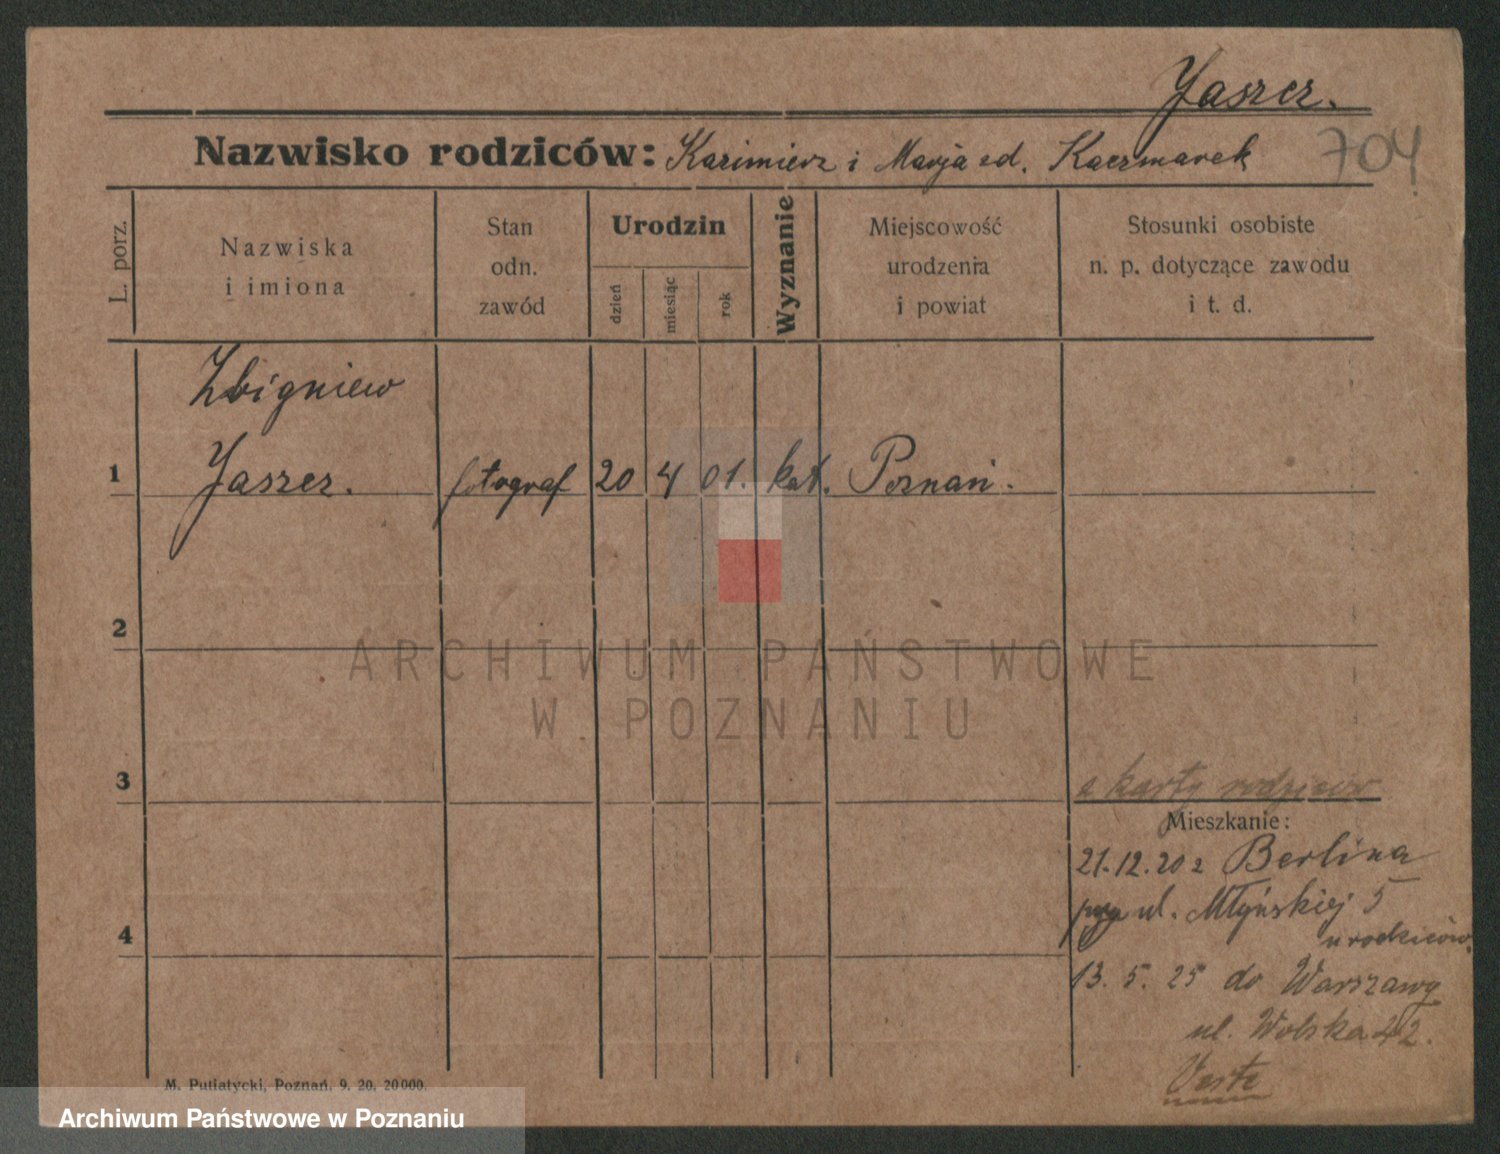 Jaszcz.
Nazwisko rodziców: Kazimierz i Marja zd. Kaczmarek 704
L. porz.
Nazwiska
i imiona
Stan
odn.
zawód
Urodzin
dzień
miesiąc
rok
Wyznanie
Miejscowość
urodzenia
i powiat
Stosunki osobiste
n. p. dotyczące zawodu
i t. d.
Zbigniew
1 Jaszcz. fotograf 20 4 01. kat. Poznań.
2
ARCHIWUM PAŃSTWOWE
W POZNANIU
3
z karty rodziców
Mieszkanie:
21.12.20 z Berlina
przy ul. Młyńskiej 5
u rodziców.
4
13. 5. 25 do Warszawy
ul. Wolska 42.
M. Putiatycki, Poznań. 9. 20. 20000.
Archiwum Państwowe w Poznaniu